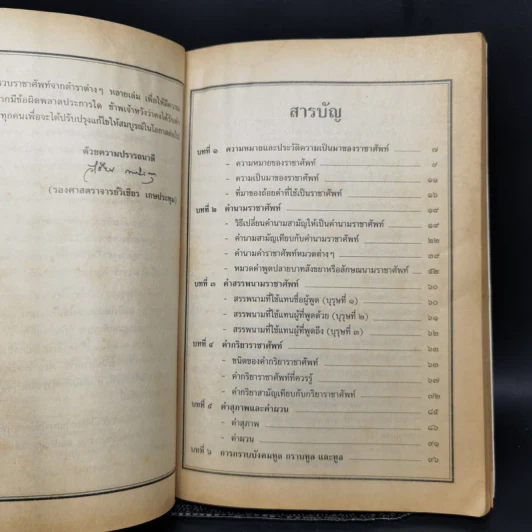 นวบราชาศัพท์จากตำราต่างๆ หลายเล่ม เพื่อให้มีความ
ากมีข้อผิดพลาดประการใด ข้าพเจ้าหวังว่าคงได้รับคำ
ทุกคนเพื่อจะได้ปรับปรุงแก้ไขให้สมบูรณ์ในโอกาสต่อไป
ด้วยความปรารถนาดี
(รองศาสตราจารย์วิเชียร เกษประทุม)
สารบัญ
บทที่ ๑ ความหมายและประวัติความเป็นมาของราชาศัพท์ ๗
- ความหมายของราชาศัพท์ ๙
- ความเป็นมาของราชาศัพท์ ๑๑
- ที่มาของถ้อยคำที่ใช้เป็นราชาศัพท์ ๑๖
บทที่ ๒ คำนามราชาศัพท์ ๑๙
- วิธีเปลี่ยนคำนามสามัญให้เป็นคำนามราชาศัพท์ ๑๙
- คำนามสามัญเทียบกับคำนามราชาศัพท์ ๒๒
- คำนามคำราชาศัพท์หมวดต่างๆ ๓๘
- หมวดคำพูดปลายบาทสังขยาหรือลักษณนามราชาศัพท์ ๕๒
บทที่ ๓ คำสรรพนามราชาศัพท์ ๖๐
- สรรพนามที่ใช้แทนชื่อผู้พูด (บุรุษที่ ๑) ๖๐
- สรรพนามที่ใช้แทนผู้ที่พูดด้วย (บุรุษที่ ๒) ๖๑
- สรรพนามที่ใช้แทนผู้ที่พูดถึง (บุรุษที่ ๓) ๖๒
บทที่ ๔ คำกริยาราชาศัพท์ ๖๓
- ชนิดของคำกริยาราชาศัพท์ ๖๓
- คำกริยาราชาศัพท์ที่ควรรู้ ๖๗
- คำกริยาสามัญเทียบกับกริยาราชาศัพท์ ๗๒
บทที่ ๕ คำสุภาพและคำผวน ๘๕
- คำสุภาพ ๘๖
- คำผวน ๙๑
บทที่ ๖ การกราบบังคมทูล กราบทูล และทูล ๙๖